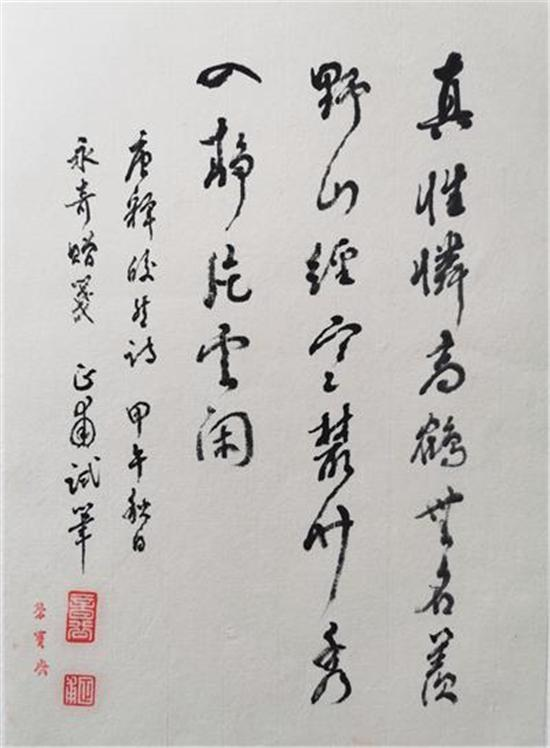 真性憐高鶴無名羨
野山經寒叢竹秀
入靜片雲閑
唐釋皎然詩 甲午秋日
永奇贈箋 正甫試筆
榮寶齋